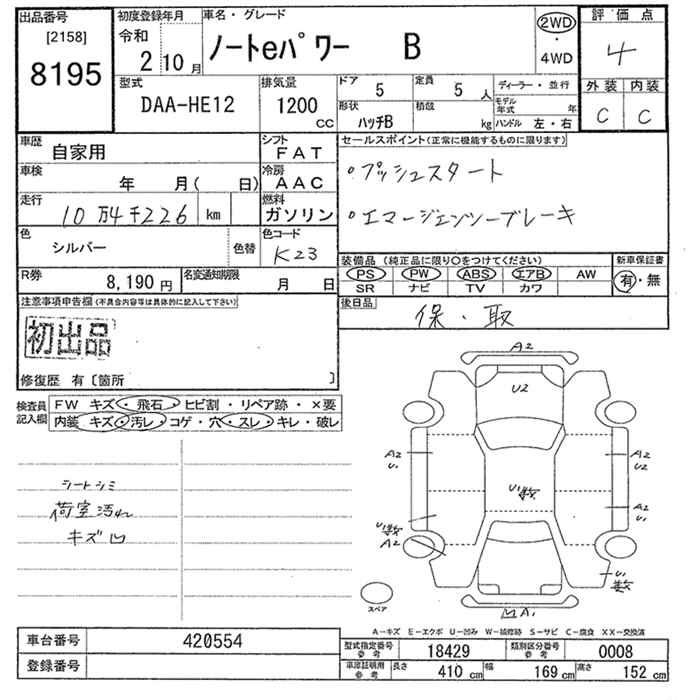 出品番号
[2158]
8195
初度登録年月
令和
2 10月
車名・グレード
ノートeパワー B
2WD
・
4WD
評価点
4
外装 内装
C C
型式
DAA-HE12
排気量
1200
CC
ドア
5
定員
5 人
形状
ハッチB
積載
kg
ディーラー・並行
モデル年式 年
ハンドル 左・右
車歴
自家用
車検
年 月( 日)
走行
10万4千226 km
色
シルバー
色替
シフト
FAT
冷房
AAC
燃料
ガソリン
色コード
K23
R券
8,190 円
名変通知期限
月 日
セールスポイント(正常に機能するものに限ります)
・プッシュスタート
・エマージェンシーブレーキ
装備品(純正品に限り○をつけてください)
PS PW ABS エアB AW
SR ナビ TV カワ
新車保証書
有・無
後日品
保・取
注意事項申告欄(不具合内容等は具体的に記入して下さい)
初出品
修復歴 有〔箇所 〕
検査員記入欄
FW キズ・飛石・ヒビ割・リペア跡・×要
内装 キズ・汚レ・コゲ・穴・スレ・キレ・破レ
シートシミ
荷室汚れ
キズ凹
A2
U2
A2
U1
A2
U2
U1数
A2
U1
U1数
A2
U1
数
凹A1
スペア
A-キズ E-エクボ U-凹み W-補修跡 S-サビ C-腐食 XX-交換済
車台番号 420554
登録番号
型式指定番号参考 18429
類別区分番号参考 0008
車庫証明用参考 長さ 410 cm 幅 169 cm 高さ 152 cm